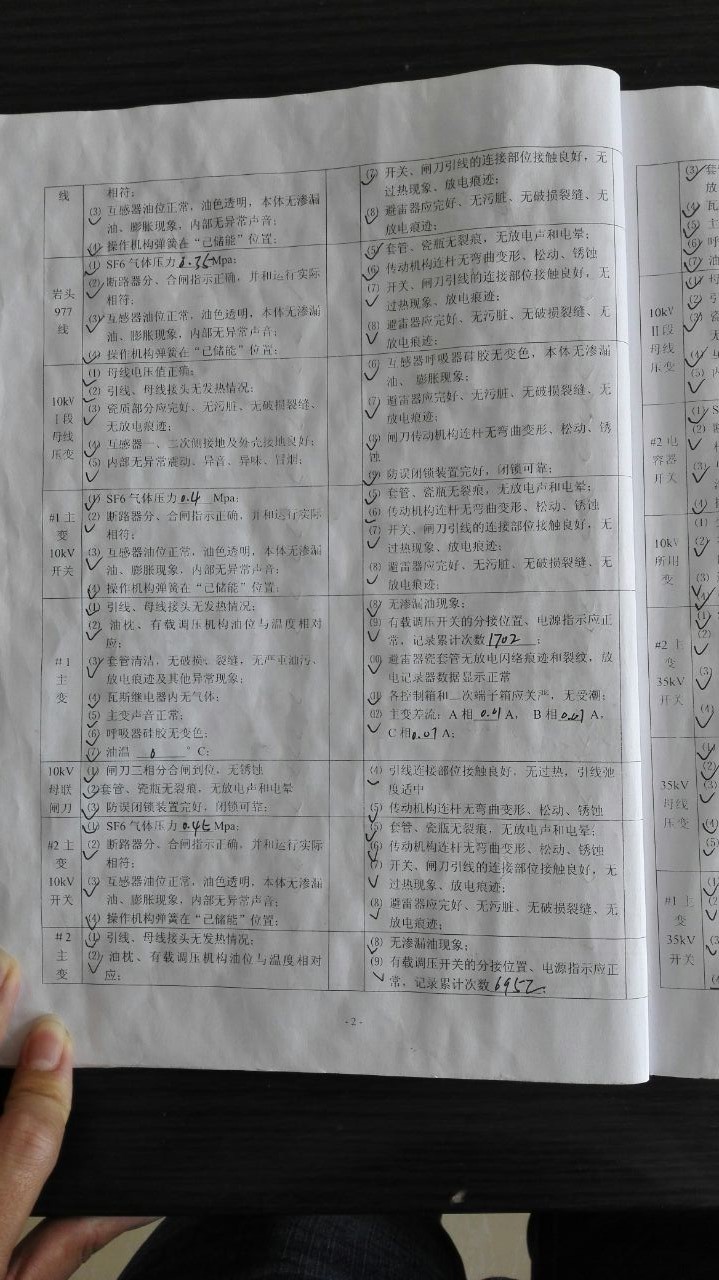 线
相符；
(3) 互感器油位正常，油色透明，本体无渗漏
油、膨胀现象，内部无异常声音；
(4) 操作机构弹簧在“已储能”位置；
(7) 开关、闸刀引线的连接部位接触良好，无
过热现象、放电痕迹；
(8) 避雷器应完好、无污脏、无破损裂缝、无
放电痕迹；
岩头
977
线
(1) SF6 气体压力 0.35 Mpa；
(2) 断路器分、合闸指示正确，并和运行实际
相符；
(3) 互感器油位正常，油色透明，本体无渗漏
油、膨胀现象，内部无异常声音；
(4) 操作机构弹簧在“已储能”位置；
(5) 套管、瓷瓶无裂痕，无放电声和电晕；
(6) 传动机构连杆无弯曲变形、松动、锈蚀
(7) 开关、闸刀引线的连接部位接触良好，无
过热现象、放电痕迹；
(8) 避雷器应完好、无污脏、无破损裂缝、无
放电痕迹；
10kV
Ⅰ段
母线
压变
(1) 母线电压值正确；
(2) 引线、母线接头无发热情况；
(3) 瓷质部分应完好、无污脏、无破损裂缝、
无放电痕迹；
(4) 互感器一、二次侧接地及外壳接地良好；
(5) 内部无异常震动、异音、异味、冒烟；
(6) 互感器呼吸器硅胶无变色，本体无渗漏
油、膨胀现象；
(7) 避雷器应完好、无污脏、无破损裂缝、无
放电痕迹；
(8) 闸刀传动机构连杆无弯曲变形、松动、锈
蚀
(9) 防误闭锁装置完好，闭锁可靠；
#1 主
变
10kV
开关
(1) SF6 气体压力 0.4 Mpa；
(2) 断路器分、合闸指示正确，并和运行实际
相符；
(3) 互感器油位正常，油色透明，本体无渗漏
油、膨胀现象，内部无异常声音；
(4) 操作机构弹簧在“已储能”位置；
(5) 套管、瓷瓶无裂痕，无放电声和电晕；
(6) 传动机构连杆无弯曲变形、松动、锈蚀
(7) 开关、闸刀引线的连接部位接触良好，无
过热现象、放电痕迹；
(8) 避雷器应完好、无污脏、无破损裂缝、无
放电痕迹；
#1
主
变
(1) 引线、母线接头无发热情况；
(2) 油枕、有载调压机构油位与温度相对
应；
(3) 套管清洁，无破损、裂缝，无严重油污、
放电痕迹及其他异常现象；
(4) 瓦斯继电器内无气体；
(5) 主变声音正常；
(6) 呼吸器硅胶无变色；
(7) 油温 0 °C；
(8) 无渗漏油现象；
(9) 有载调压开关的分接位置、电源指示应正
常，记录累计次数 1702 ；
(10) 避雷器瓷套管无放电闪络痕迹和裂纹，放
电记录器数据显示正常
(11) 各控制箱和二次端子箱应关严，无受潮；
(12) 主变差流：A 相 0.01 A， B 相 0.01 A，
C 相 0.01 A；
10kV
母联
闸刀
(1) 闸刀三相分合闸到位，无锈蚀
(2) 套管、瓷瓶无裂痕，无放电声和电晕
(3) 防误闭锁装置完好，闭锁可靠；
(4) 引线连接部位接触良好，无过热，引线弛
度适中
(5) 传动机构连杆无弯曲变形、松动、锈蚀
#2 主
变
10kV
开关
(1) SF6 气体压力 0.45 Mpa；
(2) 断路器分、合闸指示正确，并和运行实际
相符；
(3) 互感器油位正常，油色透明，本体无渗漏
油、膨胀现象，内部无异常声音；
(4) 操作机构弹簧在“已储能”位置；
(5) 套管、瓷瓶无裂痕，无放电声和电晕；
(6) 传动机构连杆无弯曲变形、松动、锈蚀
(7) 开关、闸刀引线的连接部位接触良好，无
过热现象、放电痕迹；
(8) 避雷器应完好、无污脏、无破损裂缝、无
放电痕迹；
#2
主
变
(1) 引线、母线接头无发热情况；
(2) 油枕、有载调压机构油位与温度相对
应；
(8) 无渗漏油现象；
(9) 有载调压开关的分接位置、电源指示应正
常，记录累计次数 6952
- 2 -
10kV
Ⅱ段
母线
压变
#2 电
容器
开关
10kV
所用
变
#2 主
变
35kV
开关
35kV
母线
压变
#1 主
变
35kV
开关